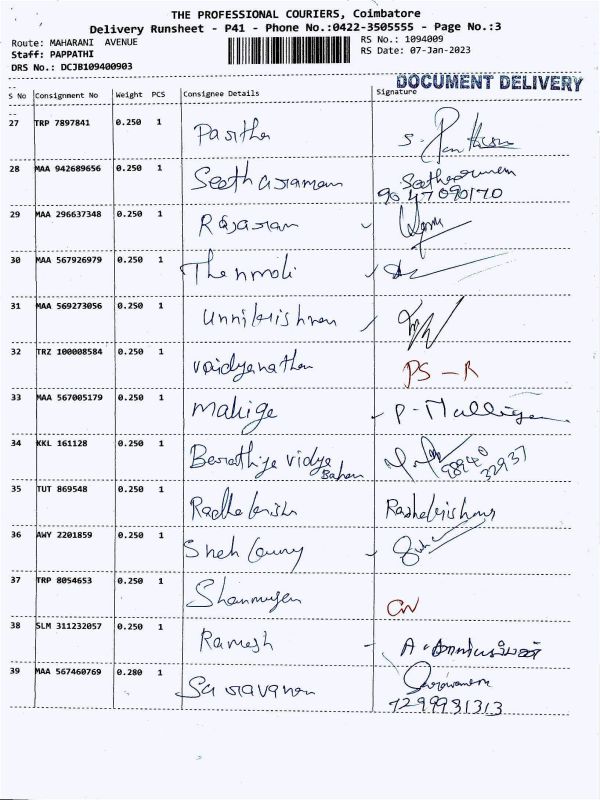 THE PROFESSIONAL COURIERS, Coimbatore
Delivery Runsheet - P41 - Phone No.:0422-3505555 - Page No.:3
Route: MAHARANI AVENUE RS No.: 1094009
Staff: PAPPATHI RS Date: 07-Jan-2023
DRS No.: DCJB109400903
DOCUMENT DELIVERY
S No Consignment No Weight PCS Consignee Details Signature
27 TRP 7897841 0.250 1 Pavithra
28 MAA 942689656 0.250 1 Seetharaman Seetharaman
9047090170
29 MAA 296637348 0.250 1 Rajaram
30 MAA 567926979 0.250 1 Thenmoli
31 MAA 569273056 0.250 1 Unnikrishnan
32 TRZ 100008584 0.250 1 Vaidyanathan PS - R
33 MAA 567005179 0.250 1 Malige P-Malliga
34 KKL 161128 0.250 1 Barathiya vidya
Bahan 98940
32937
35 TUT 869548 0.250 1 Radha krish Radhakrishnan
36 AWY 2201859 0.250 1 Sneh
37 TRP 8054653 0.250 1 Shanmugam CN
38 SLM 311232057 0.250 1 Ramesh
39 MAA 567460769 0.280 1 Saravanan Saravanan
7299931313